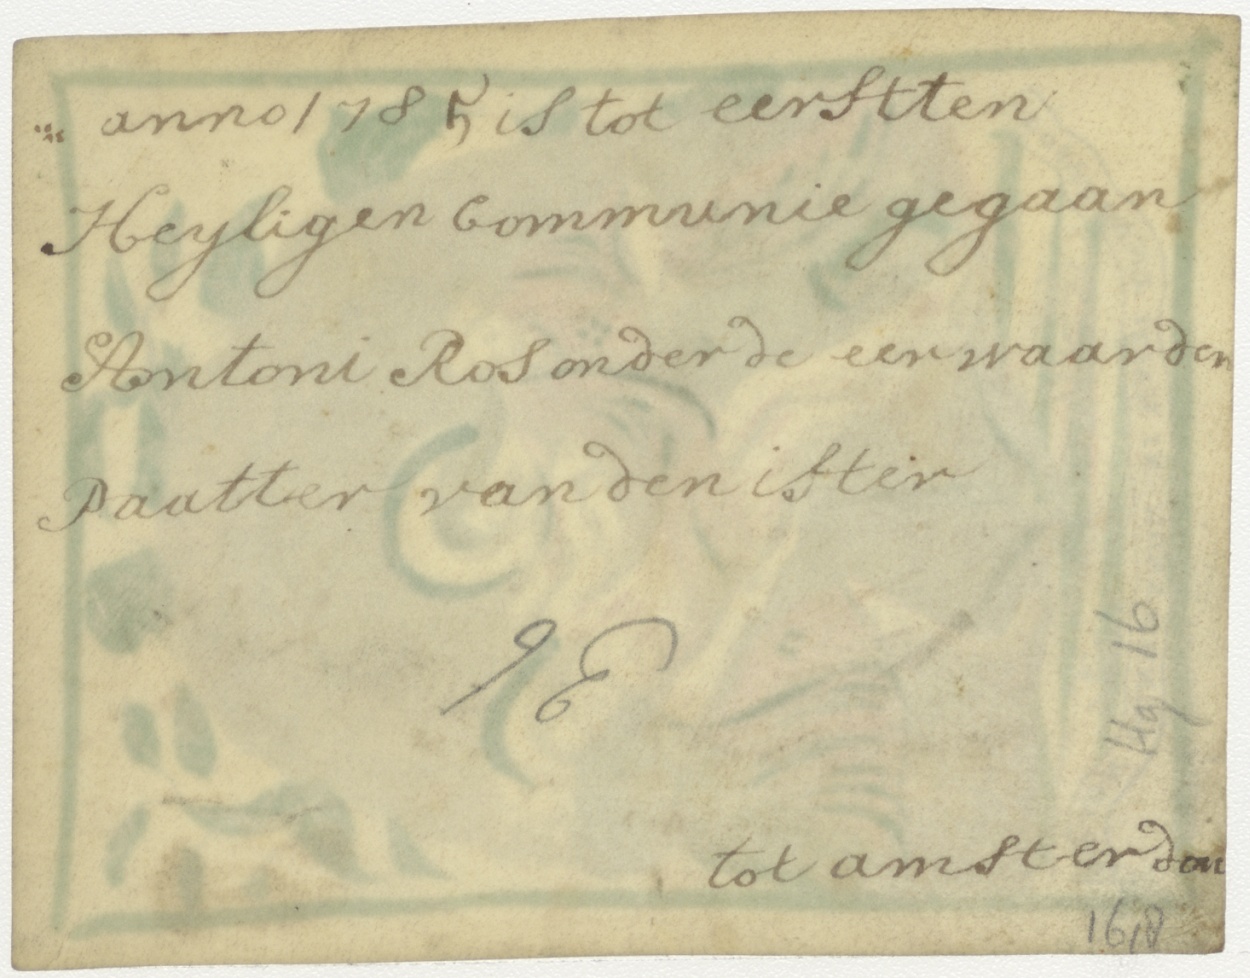 anno 1785 is tot eerstten
Heyligen Communie gegaan
Antoni Ros onder de eerwaarden
Paatter van den ister
JE
tot amsterdam
Hg 16